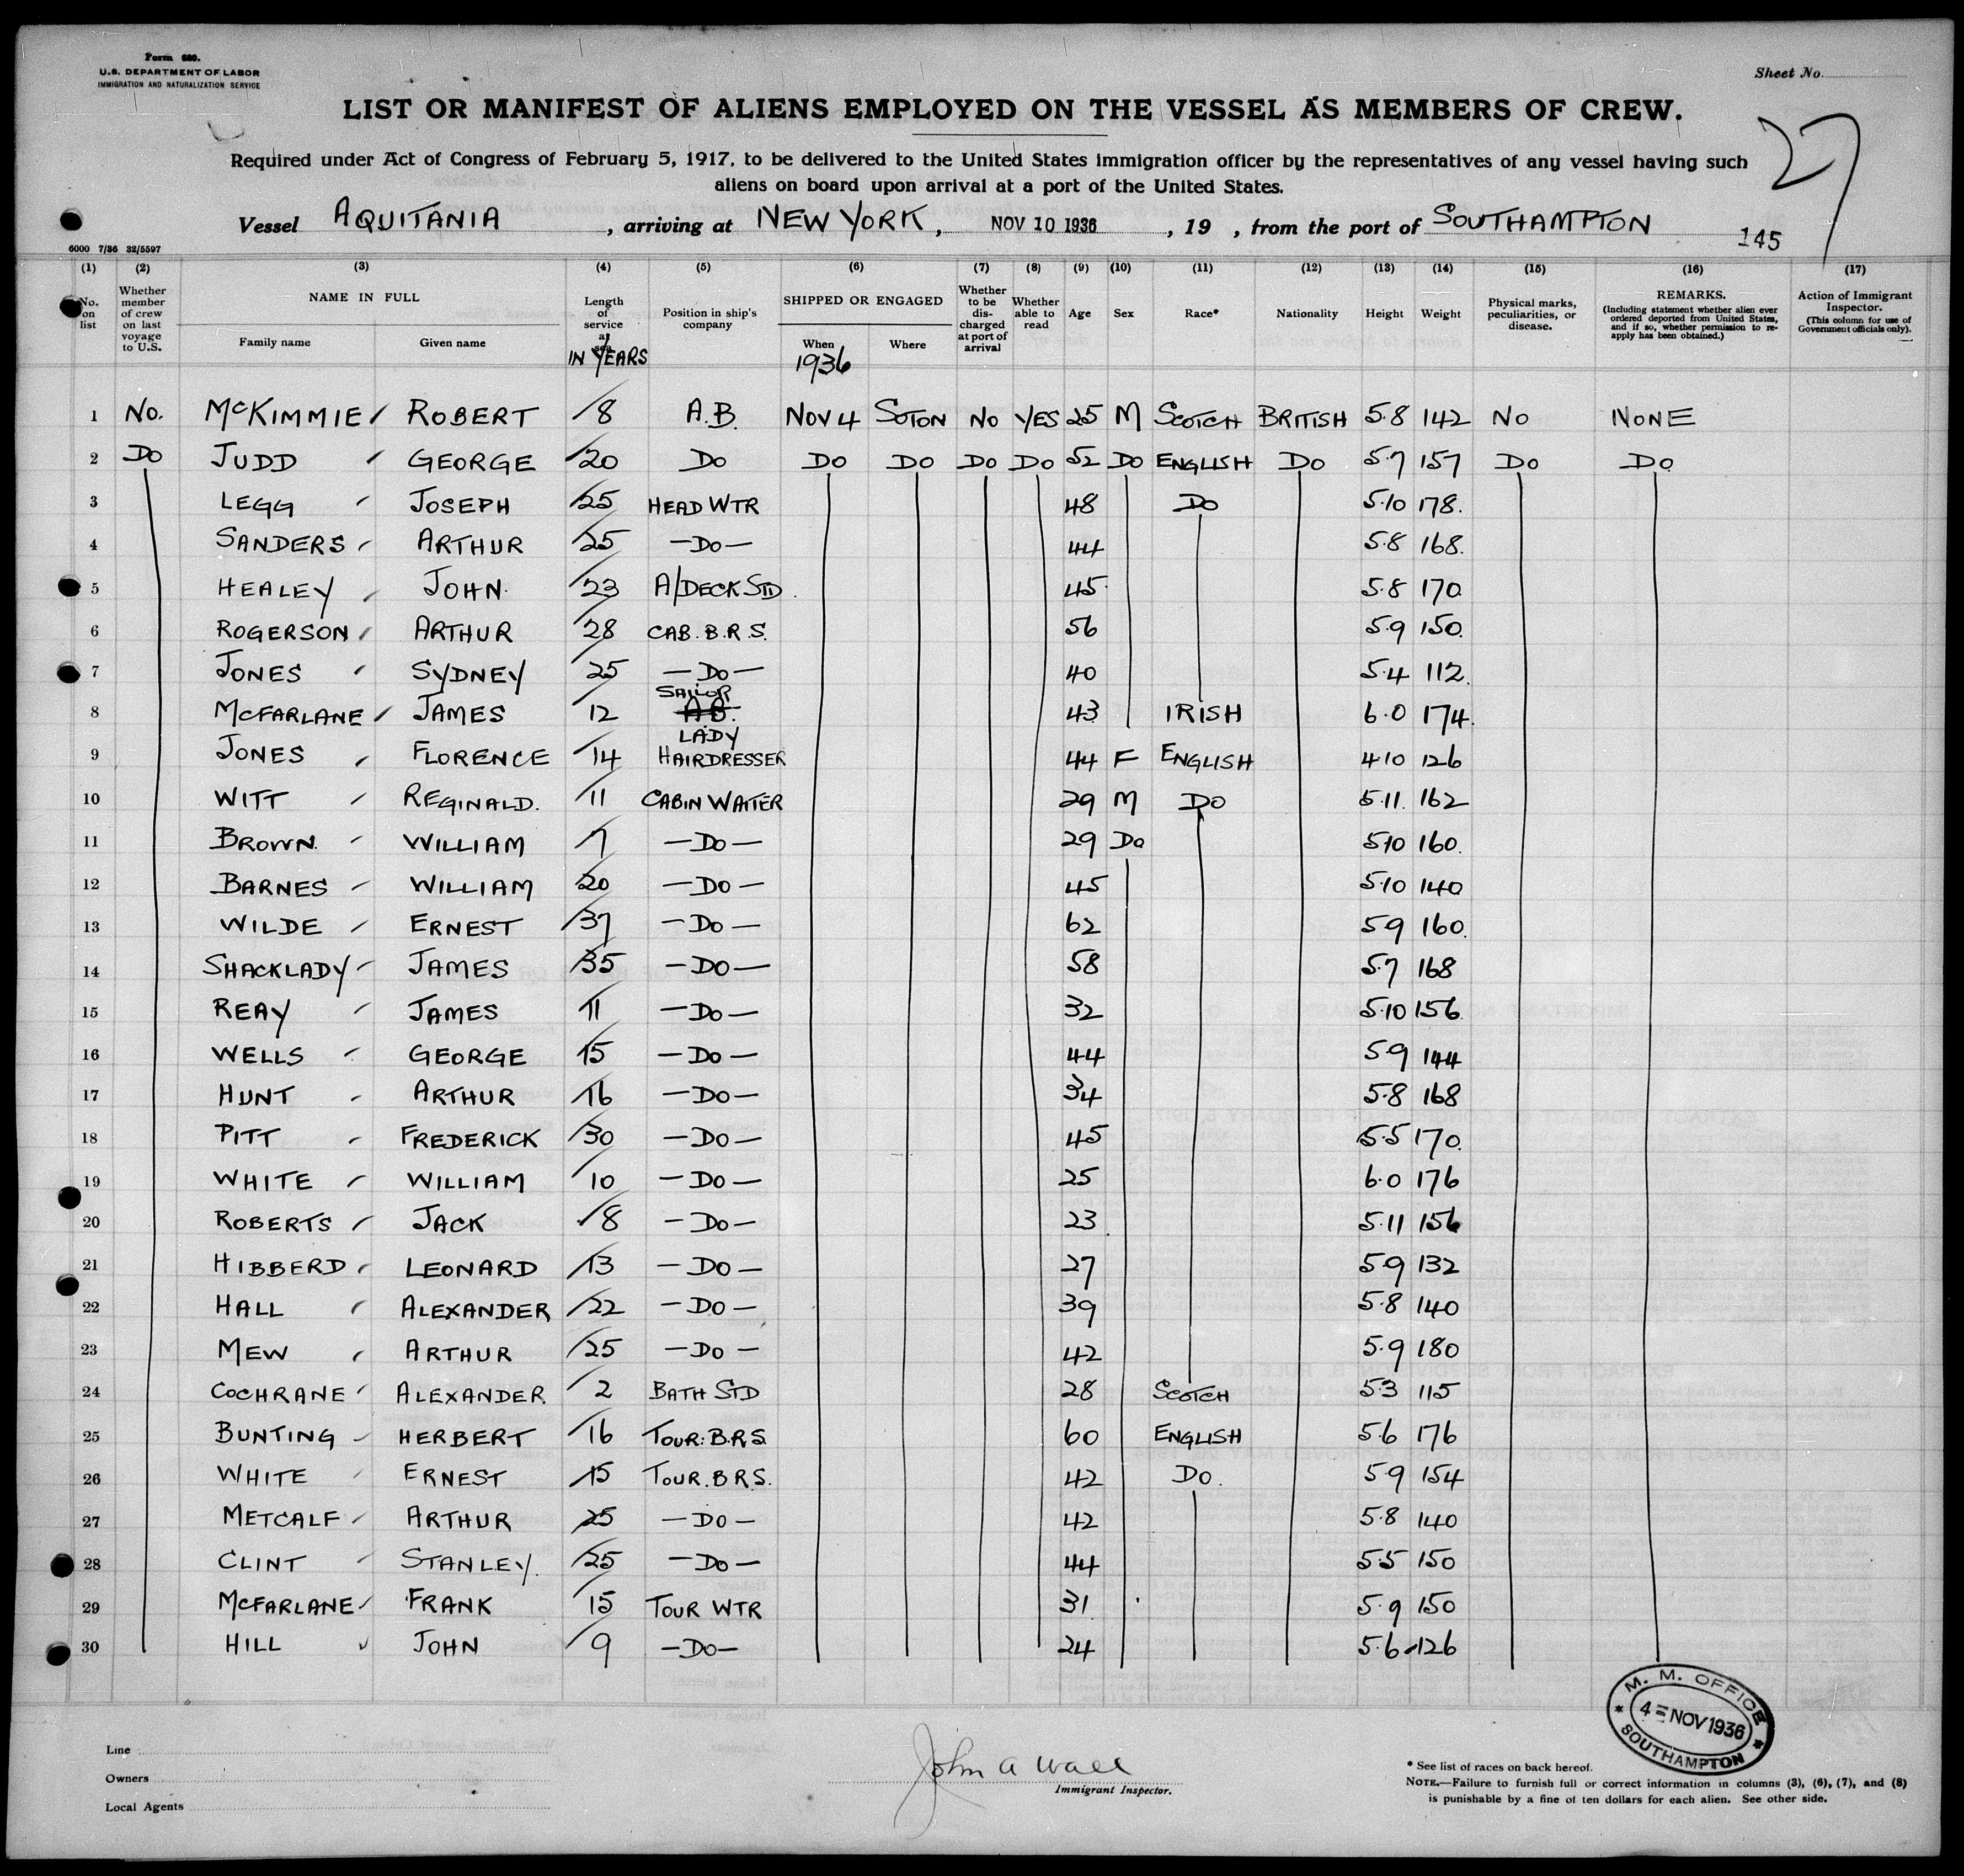 Form 680.
U.S. DEPARTMENT OF LABOR
IMMIGRATION AND NATURALIZATION SERVICE
Sheet No.
LIST OR MANIFEST OF ALIENS EMPLOYED ON THE VESSEL AS MEMBERS OF CREW.
27
Required under Act of Congress of February 5, 1917, to be delivered to the United States immigration officer by the representatives of any vessel having such
aliens on board upon arrival at a port of the United States.
Vessel AQUITANIA, arriving at NEW YORK, NOV 10 1936, 19 , from the port of SOUTHAMPTON
145
6000 7/36 32/5597
(1) (2) (3) (4) (5) (6) (7) (8) (9) (10) (11) (12) (13) (14) (15) (16) (17)
No. on list
Whether member of crew on last voyage to U.S.
NAME IN FULL
Family name Given name
Length of service at sea
IN YEARS
Position in ship's company
SHIPPED OR ENGAGED
When Where
1936
Whether to be discharged at port of arrival
Whether able to read
Age
Sex
Race*
Nationality
Height
Weight
Physical marks, peculiarities, or disease.
REMARKS.
(Including statement whether alien ever ordered deported from United States, and if so, whether permission to re-apply has been obtained.)
Action of Immigrant Inspector.
(This column for use of Government officials only).
1 NO. McKIMMIE ROBERT 8 A.B. NOV 4 SOTON NO YES 25 M SCOTCH BRITISH 5.8 142 NO NONE
2 DO JUDD GEORGE 20 DO DO DO DO DO 52 DO ENGLISH DO 5.7 157 DO DO
3 LEGG JOSEPH 25 HEAD WTR 48 DO 5.10 178.
4 SANDERS ARTHUR 25 —DO— 44 5.8 168.
5 HEALEY JOHN. 23 A/DECK STD. 45 5.8 170
6 ROGERSON ARTHUR 28 CAB. B.R.S. 56 5.9 150.
7 JONES SYDNEY 25 —DO— 40 5.4 112.
8 McFARLANE JAMES 12 SAILOR A.B. 43 IRISH 6.0 174.
9 JONES FLORENCE 14 LADY HAIRDRESSER 44 F ENGLISH 4.10 126
10 WITT REGINALD. 11 CABIN WAITER 29 M DO 5.11. 162
11 BROWN. WILLIAM 7 —DO— 29 DO 5.10 160.
12 BARNES WILLIAM 20 —DO— 45 5.10 140
13 WILDE ERNEST 37 —DO— 62 5.9 160.
14 SHACKLADY JAMES 35 —DO— 58 5.7 168
15 REAY JAMES 11 —DO— 32 5.10 156
16 WELLS GEORGE 15 —DO— 44 5.9 144
17 HUNT ARTHUR 16 —DO— 34 5.8 168
18 PITT FREDERICK 30 —DO— 45 5.5 170.
19 WHITE WILLIAM 10 —DO— 25 6.0 176
20 ROBERTS JACK 8 —DO— 23 5.11 156
21 HIBBERD LEONARD 13 —DO— 27 5.9 132
22 HALL ALEXANDER 22 —DO— 39 5.8 140
23 MEW ARTHUR 25 —DO— 42 5.9 180
24 COCHRANE ALEXANDER. 2 BATH STD 28 SCOTCH 5.3 115
25 BUNTING HERBERT 16 TOUR: B.R.S. 60 ENGLISH 5.6 176
26 WHITE ERNEST 15 TOUR. B.R.S. 42 DO. 5.9 154
27 METCALF ARTHUR 25 —DO— 42 5.8 140
28 CLINT STANLEY. 25 —DO— 44 5.5 150
29 McFARLANE FRANK 15 TOUR WTR 31 5.9 150
30 HILL JOHN 9 —DO— 24 5.6 126
M. M. OFFICE
4 = NOV 1936
SOUTHAMPTON
Line
Owners
Local Agents
John A Wall
Immigrant Inspector.
* See list of races on back hereof.
NOTE.—Failure to furnish full or correct information in columns (3), (6), (7), and (8)
is punishable by a fine of ten dollars for each alien. See other side.